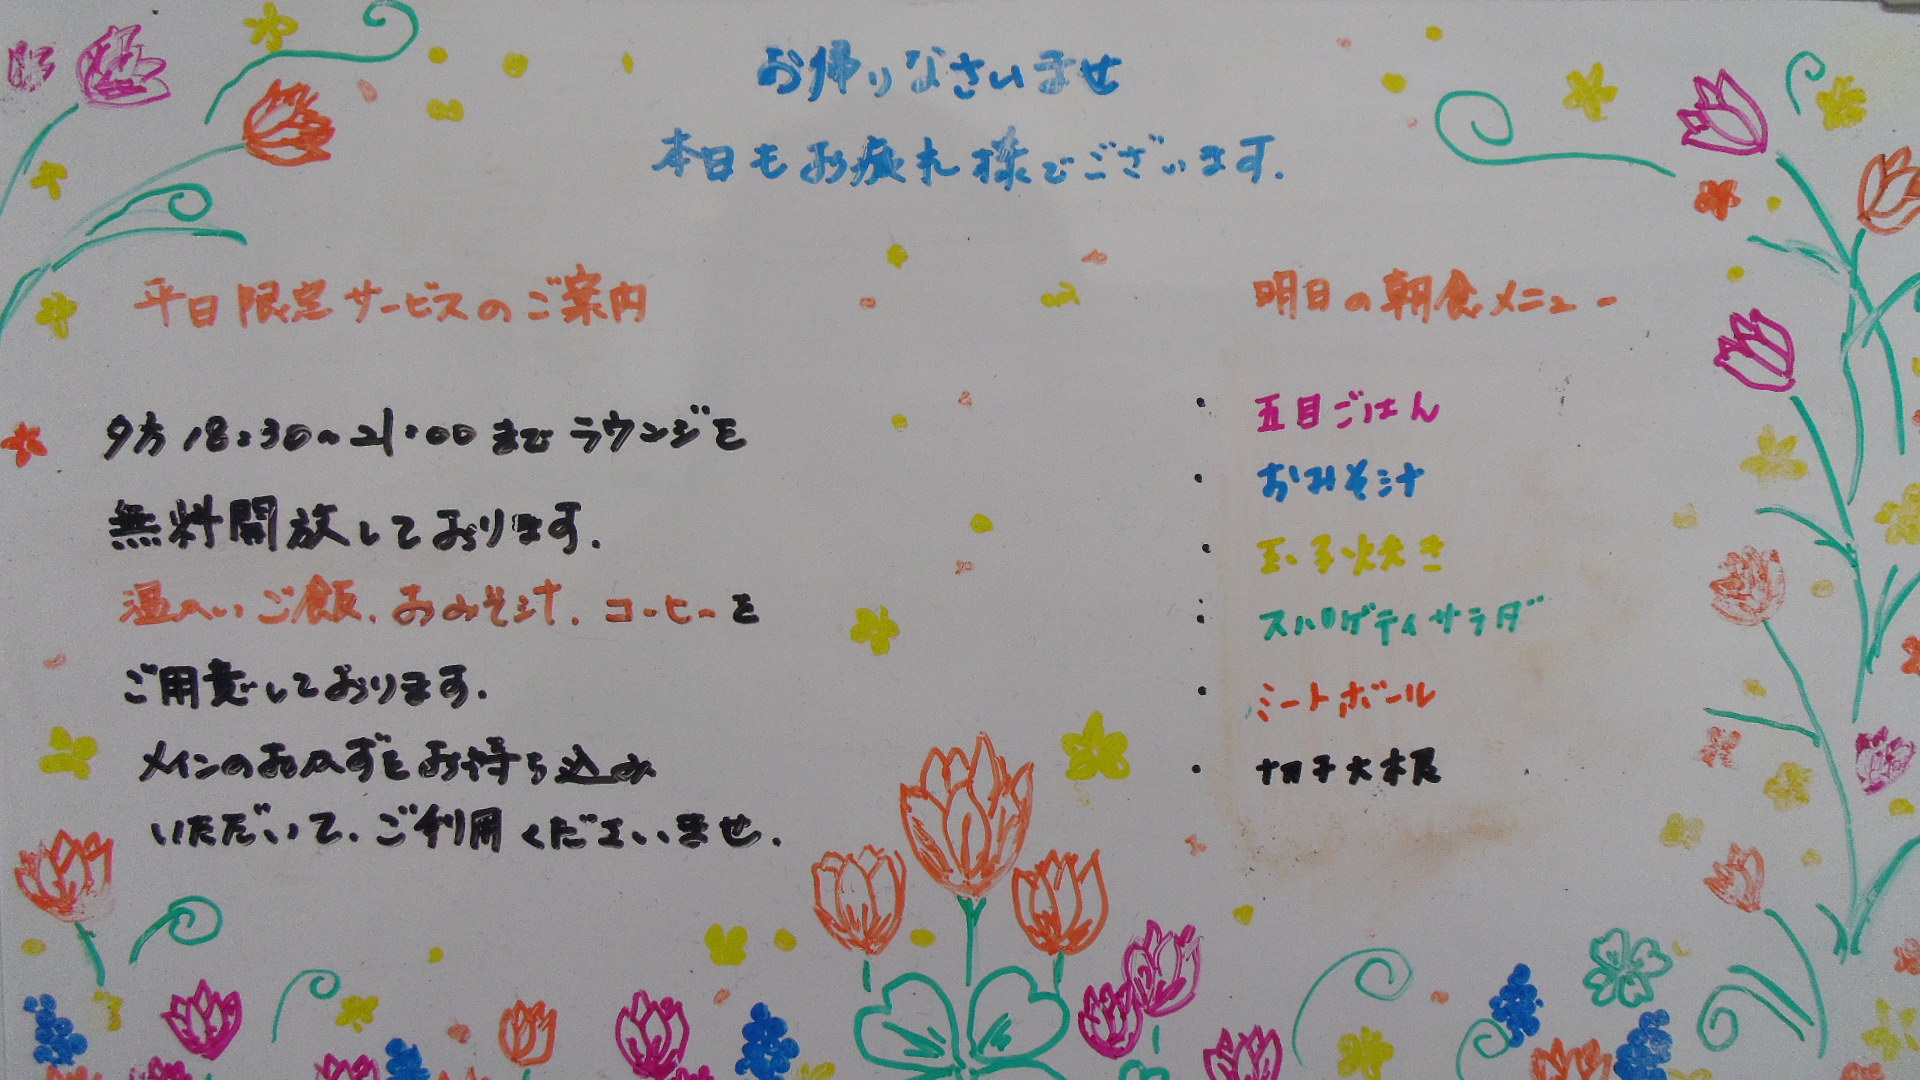 お帰りなさいませ
本日もお疲れ様でございます.
平日限定サービスのご案内
夕方18:30~21:00までラウンジを
無料開放しております.
温かいご飯.おみそ汁.コーヒーを
ご用意しております.
メインのおかずをお持ち込み
いただいて.ご利用くださいませ.
明日の朝食メニュー
・五目ごはん
・おみそ汁
・玉子焼き
・スパゲティサラダ
・ミートボール
・切干大根